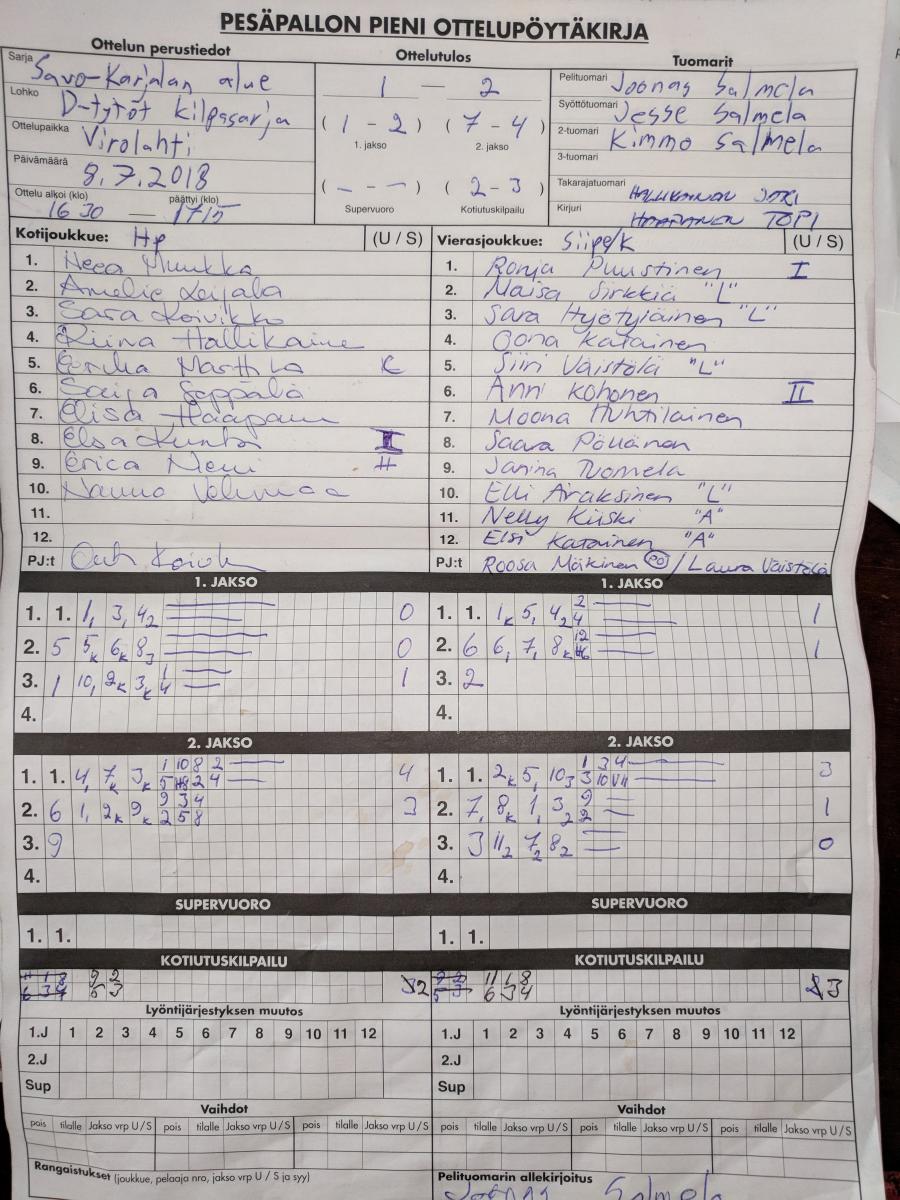 PESÄPALLON PIENI OTTELUPÖYTÄKIRJA
Ottelun perustiedot
Sarja Savo-Karjalan alue
Lohko D-tytöt kilpasarja
Ottelupaikka Virolahti
Päivämäärä 8.7.2018
Ottelu alkoi (klo) päättyi (klo)
16 30 — 1715
Ottelutulos
1 — 2
( 1 - 2 ) ( 7 - 4 )
1. jakso 2. jakso
( - - - ) ( 2 - 3 )
Supervuoro Kotiutuskilpailu
Tuomarit
Pelituomari Joonas Salmela
Syöttötuomari Jesse Salmela
2-tuomari Kimmo Salmela
3-tuomari
Takarajatuomari HALLIKAINEN
Kirjuri TOPI
Kotijoukkue: HP (U / S)
1. Neea Munkka
2. Amelie Laijala
3. Sara Koivikko
4. Riina Hallikaine
5. Marttila K
6. Saija Seppälä
7. Elisa Haapane
8. Elsa Kunto I
9. Erica Niemi #
10.
11.
12.
PJ:t Outi
Vierasjoukkue: SiipeK (U / S)
1. Ronja Puustinen I
2. Maisa Sirkkiä "L"
3. Sara Hyötyläinen "L"
4. Oona Katainen
5. Siiri Väistölä "L"
6. Anni Kohonen II
7. Moona Huhtilainen
8. Saara Pöllänen
9. Janina Tuomela
10. Elli Airaksinen "L"
11. Nelly Kiiski "A"
12. Elsi Katainen "A"
PJ:t Roosa Mäkinen PO / Laura Väistölä
1. JAKSO
1. 1. 1, 3, 4₂ 0
2. 5 5ₖ 6ₖ 8₃ 0
3. 1 10, 2ₖ 3ₖ 1 4 1
4.
1. JAKSO
1. 1. 1ₖ 5, 4₂ 2 4 1
2. 6 6, 7, 8ₖ 12 1
3. 2
4.
2. JAKSO
1. 1. 4, 7ₖ 3ₖ 1 10 8 2 4
5 2 4
2. 6 1, 2ₖ 9ₖ 9 3 4 3
2 5 8
3. 9
4.
2. JAKSO
1. 1. 2ₖ 5, 10₃ 1 3 4 3
3 10
2. 7, 8ₖ 1, 3₂ 9 2 1
3. 3 11₂ 7₂ 8₂ 0
4.
SUPERVUORO
1. 1.
SUPERVUORO
1. 1.
KOTIUTUSKILPAILU
9 2 2
5 3
KOTIUTUSKILPAILU
11 1 8 3
6 3 4
Lyöntijärjestyksen muutos
1.J 1 2 3 4 5 6 7 8 9 10 11 12
2.J
Sup
Lyöntijärjestyksen muutos
1.J 1 2 3 4 5 6 7 8 9 10 11 12
2.J
Sup
Vaihdot
pois tilalle Jakso vrp U / S pois tilalle Jakso vrp U / S pois tilalle Jakso vrp U / S
Vaihdot
pois tilalle Jakso vrp U / S pois tilalle Jakso vrp U / S pois tilalle Jakso vrp U / S
Rangaistukset (joukkue, pelaaja nro, jakso vrp U / S ja syy)
Pelituomarin allekirjoitus
Joonas Salmela